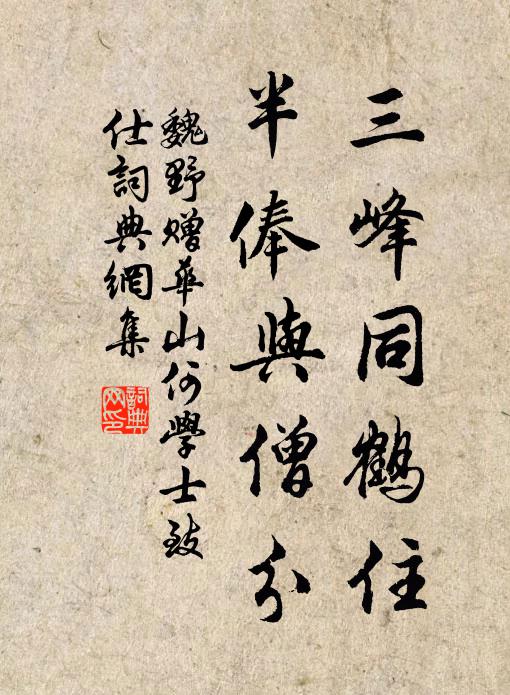 三峰同鶴住
半俸與僧分
魏野贈華山何學士致
仕詞典網集
詞典
网印